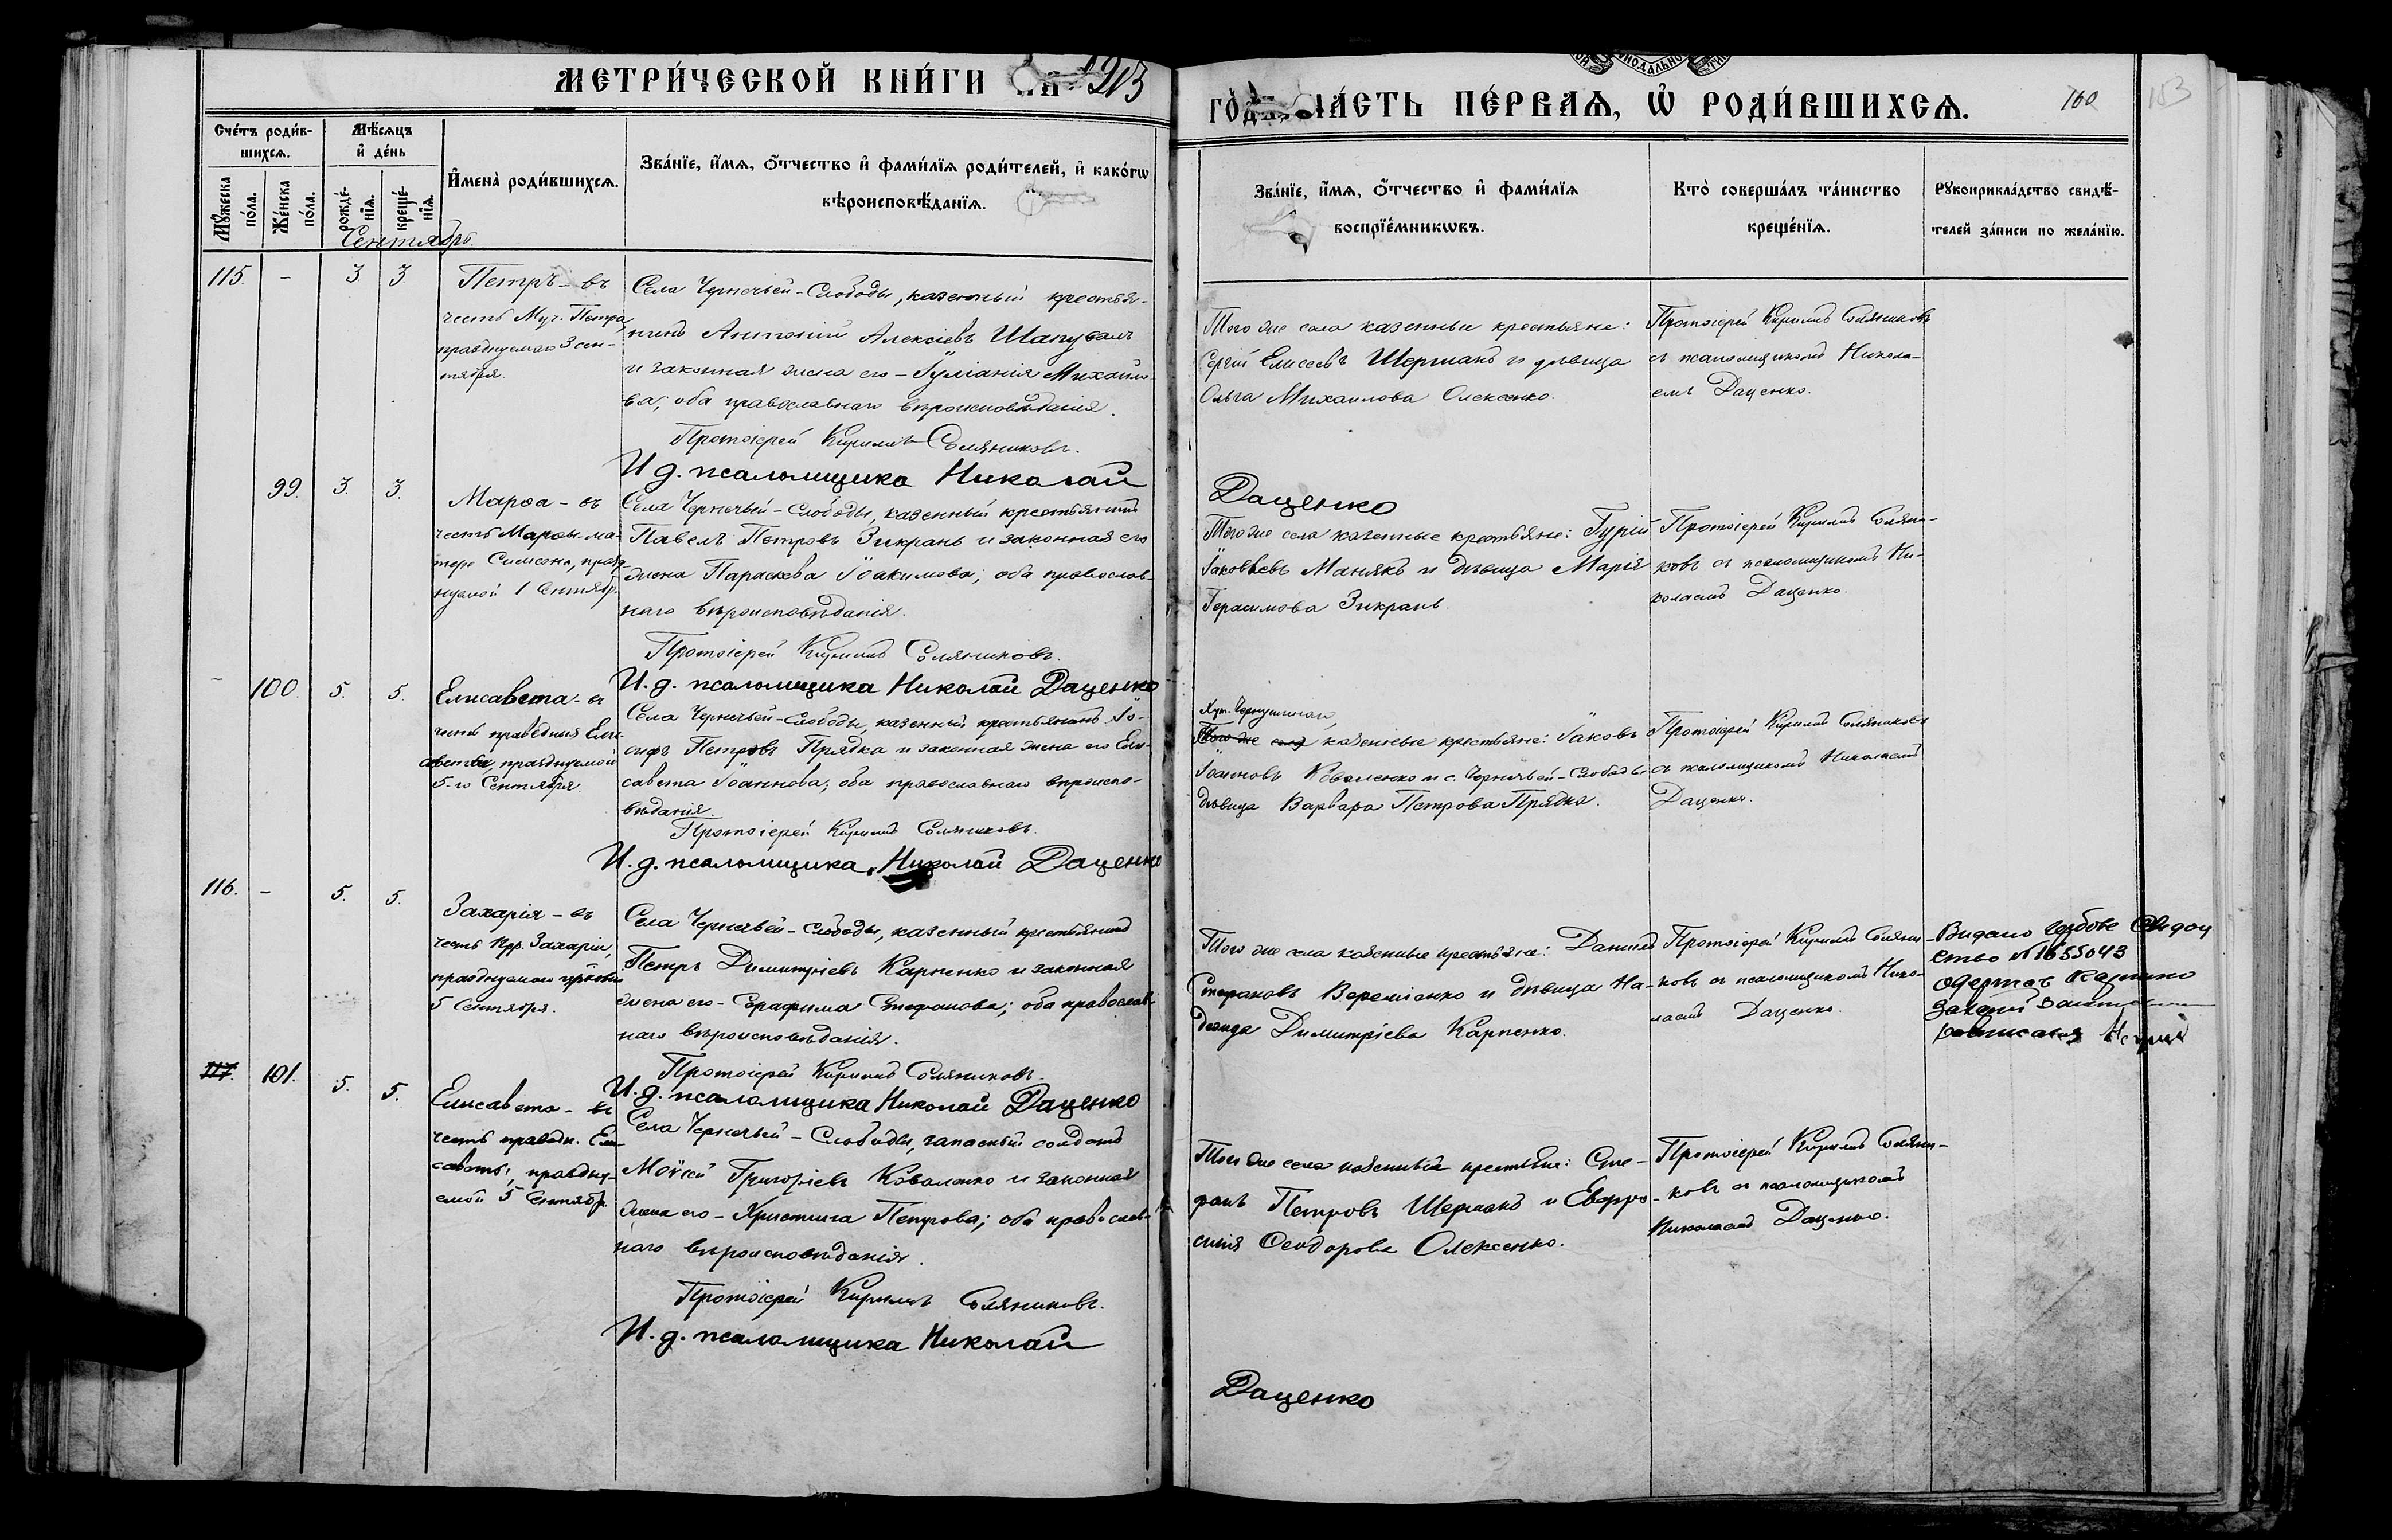 МЕТРИ́ЧЕСКОЙ КНИ́ГИ НА 1913
ГО́ДЪ, ЧА́СТЬ ПЕ́РВАѦ, Ѡ҆ РОДИ́ВШИХСѦ.
160
153
Сче́тъ роди́вшихсѧ.
Мѣ́сѧцъ и҆ де́нь
Мꙋ́жеска по́ла.
Же́нска по́ла.
рожде́нїѧ.
креще́нїѧ.
И҆мена̀ роди́вшихсѧ.
Зва́нїе, и҆́мѧ, ѻ҆́тчество и҆ фами́лїѧ роди́телей, и҆ како́гѡ
вѣроисповѣ́данїѧ.
Зва́нїе, и҆́мѧ, ѻ҆́тчество и҆ фами́лїѧ
воспрїе́мникѡвъ.
Кто̀ соверша́лъ та́инство
креще́нїѧ.
Рꙋкоприкла́дство свидѣ́-
телей за́писи по жела́нїю.
Сентябрь.
115. - 3 3
Петръ - въ
честь Муч. Петра,
празднуемаго 3 сен-
тября.
Села Чернечьей-Слободы, казенный крестья-
нинъ Антоній Алексіевъ Шаповалъ
и законная жена его - Іуліанія Михаило-
ва; оба православнаго вѣроисповѣданія.
Протоіерей Кириллъ Соляниковъ.
И д. псаломщика Николай
Даценко
Того же села казенные крестьяне:
Сергій Елисеевъ Шерманъ и дѣвица
Ольга Михаилова Олексенко.
Протоіерей Кириллъ Соляниковъ
съ псаломщикомъ Никола-
емъ Даценко.
99. 3. 3.
Марѳа - въ
честь Марѳы ма-
тере Симеона, празд-
нуемой 1 Сентябр.
Села Чернечьей-Слободы, казенный крестьянинъ
Павелъ Петровъ Зикрань и законная его
жена Параскева Іоакимова; оба православ-
наго вѣроисповѣданія.
Протоіерей Кириллъ Соляниковъ.
И. д. псаломщика Николай Даценко
Того же села казенные крестьяне: Гурій
Іаковлевъ Манякъ и дѣвица Марія
Герасимова Зикрань.
Протоіерей Кириллъ Соляни-
ковъ съ псаломщикомъ Ни-
колаемъ Даценко.
- 100. 5. 5.
Елисавета - въ
честь праведныя Ели-
саветы, празднуемой
5-го Сентября.
Села Чернечьей-Слободы, казенный крестьянинъ Іо-
сифъ Петровъ Прядка и законная жена его Ели-
савета Іоаннова; оба православнаго вѣроиспо-
вѣданія.
Протоіерей Кириллъ Соляниковъ.
И. д. псаломщика Николай Даценко
Того же села казенные крестьяне: Іаковъ
Іоанновъ Коваленко и с. Чернечьей-Слободы
дѣвица Варвара Петрова Прядка.
Протоіерей Кириллъ Соляниковъ
съ псаломщикомъ Николаемъ
Даценко.
116. - 5. 5.
Захарія - въ
честь прр. Захаріи,
празднуемаго
5 Сентября.
Села Чернечьей-Слободы, казенный крестьянинъ
Петръ Димитріевъ Карпенко и законная
жена его - Серафима Стефанова; оба православ-
наго вѣроисповѣданія.
Протоіерей Кириллъ Соляниковъ.
И. д. псаломщика Николай Даценко
Того же села казенные крестьяне: Даніилъ
Стефановъ Веремiенко и дѣвица На-
дежда Димитріева Карпенко.
Протоіерей Кириллъ Соляни-
ковъ съ псаломщикомъ Нико-
лаемъ Даценко.
Видано
ство № 1655043
117. 101. 5. 5.
Елисавета - въ
честь праведн. Ели-
саветы, праздну-
емой 5 Сентябр.
Села Чернечьей-Слободы, запасный солдатъ
Моѵсей Григоріевъ Коваленко и законная
жена его - Христина Петрова; оба православ-
наго вѣроисповѣданія.
Протоіерей Кириллъ Соляниковъ.
И. д. псаломщика Николай
Даценко
Того же села казенные крестьяне: Сте-
фанъ Петровъ Шерманъ и Евфро-
синія Ѳеодорова Олексенко.
Протоіерей Кириллъ Соляни-
ковъ съ псаломщикомъ
Николаемъ Даценко.